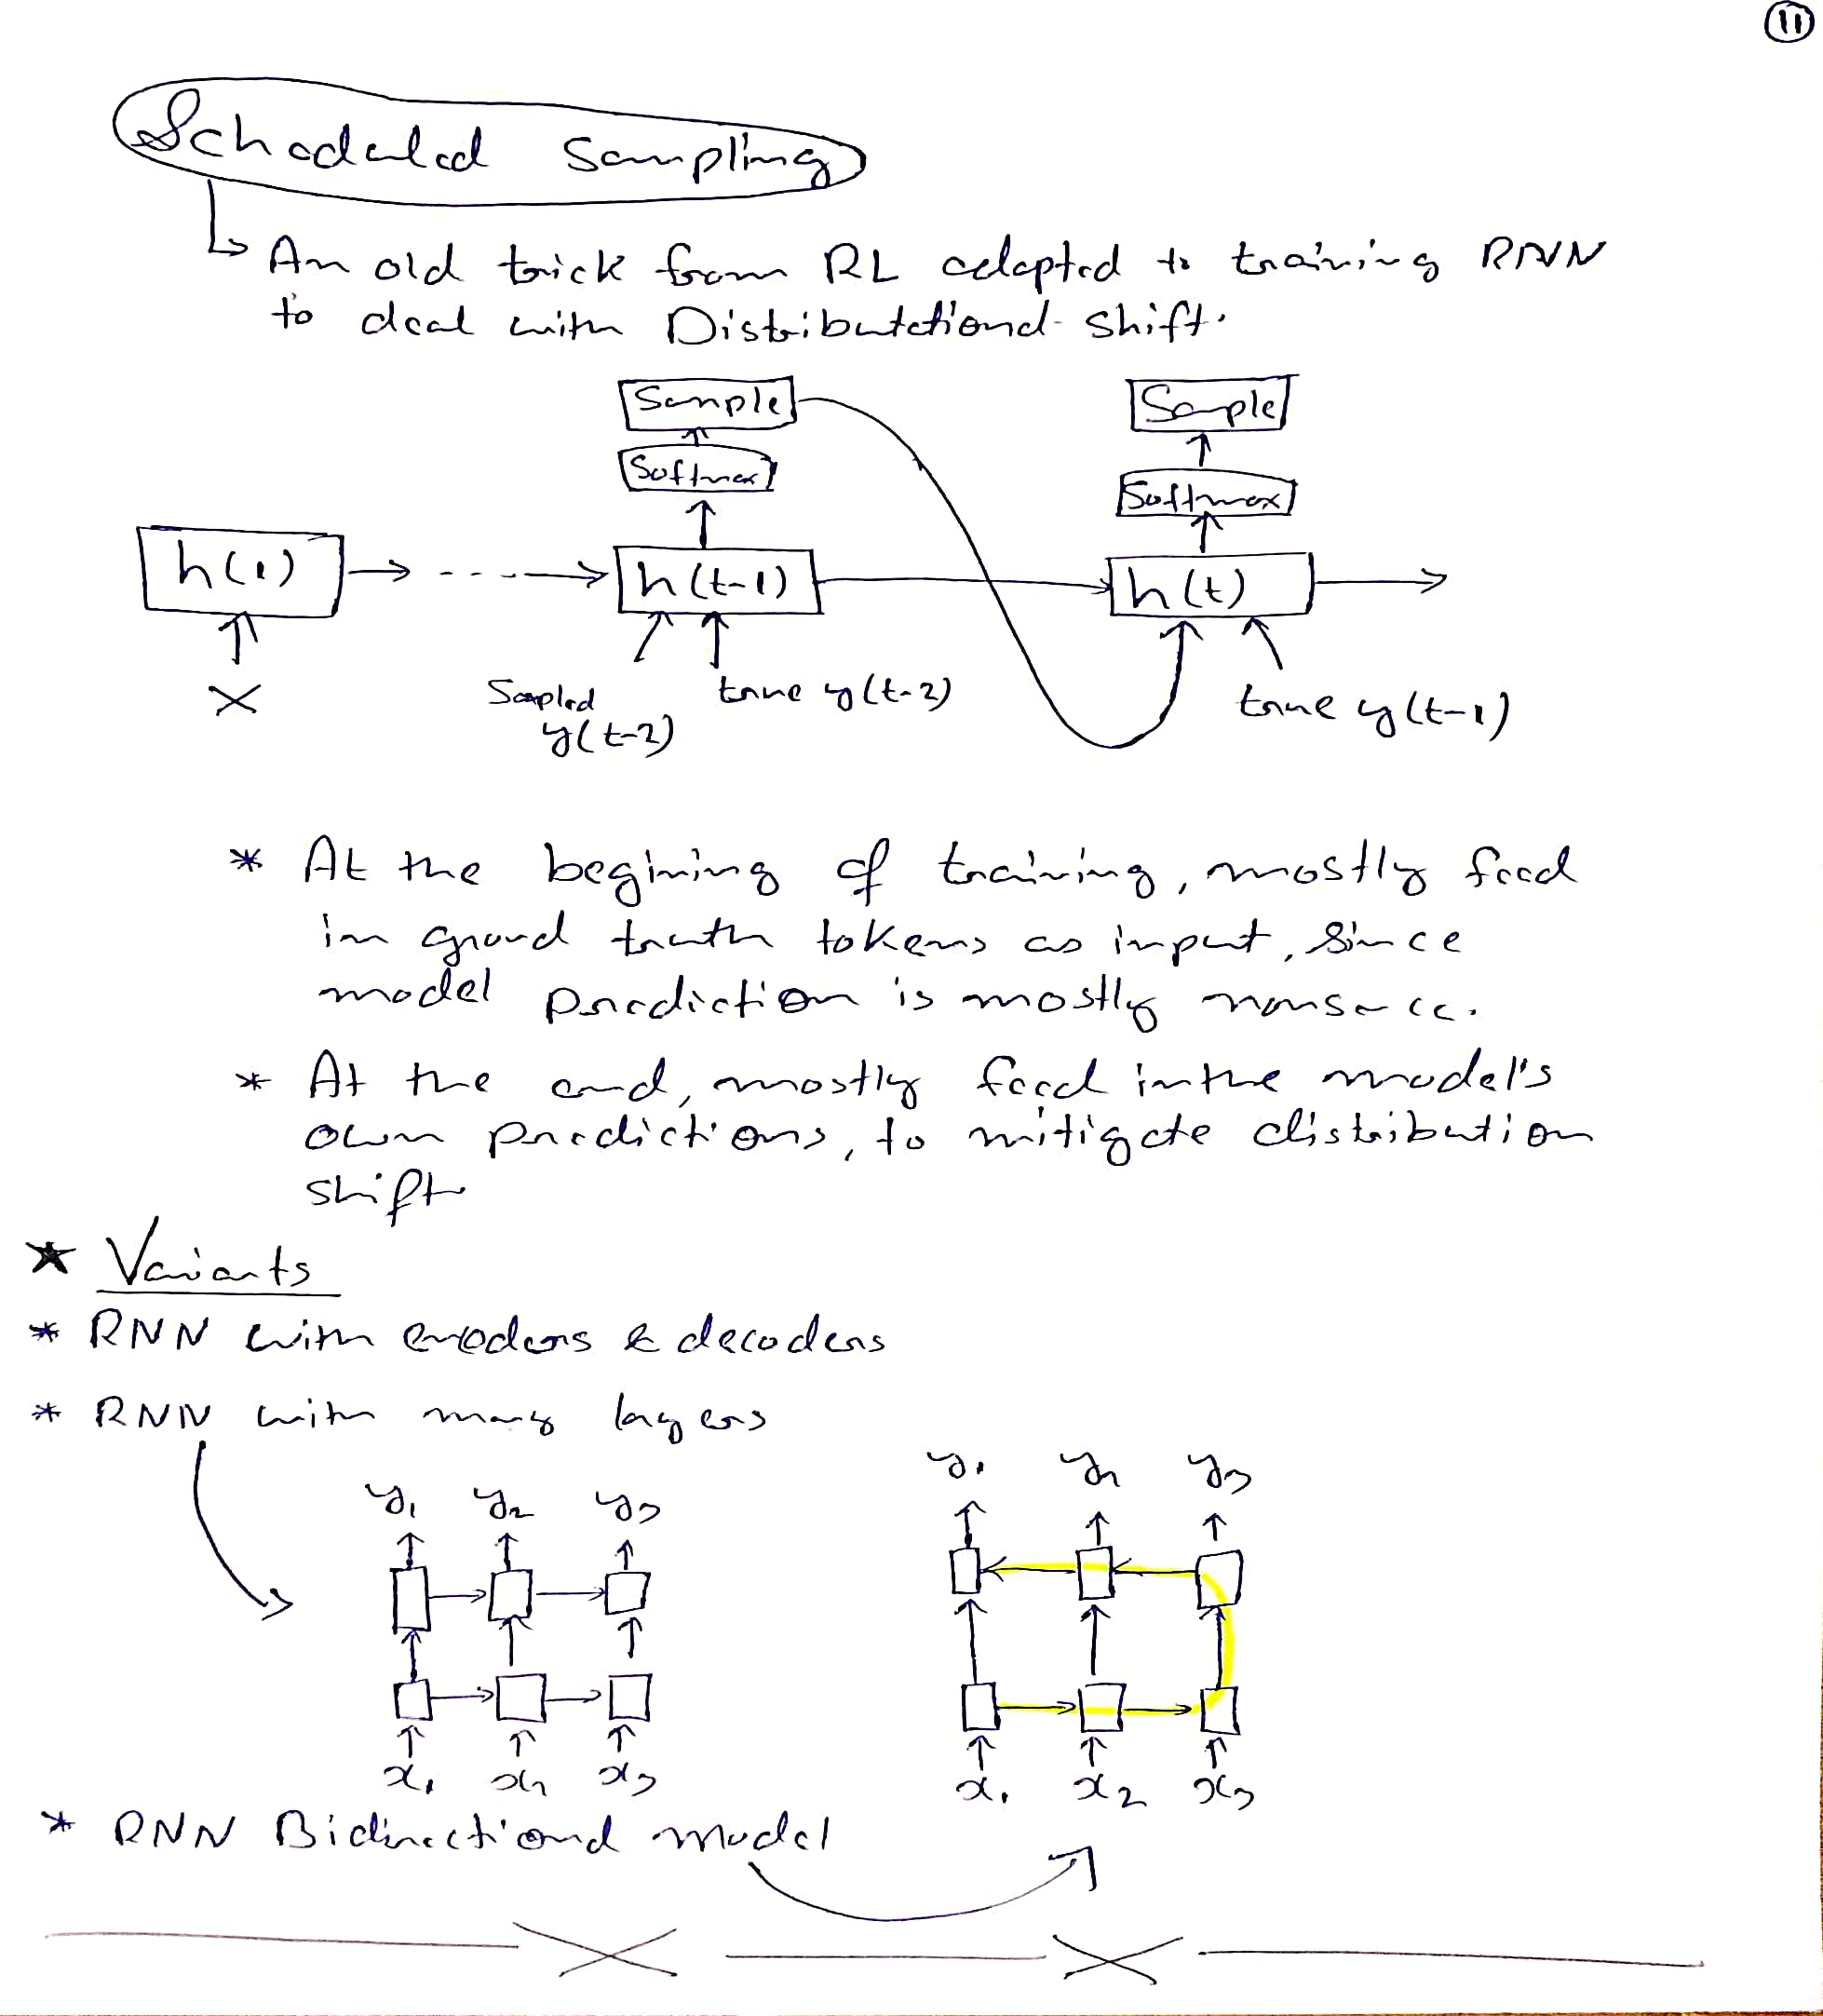 11
Scheduled Sampling
An old trick from RL adapted to training RNN
to deal with Distributational shift.
Sample
Sample
Softmax
Softmax
h(1)
h(t-1)
h(t)
X
Sampled
y(t-2)
true y(t-2)
true y(t-1)
* At the begining of training, mostly feed
in groud truth tokens as input, since
model prediction is mostly nonsence.
* At the end, mostly feed in the model's
own predictions, to mitigate distribution
shift
★ Variants
* RNN with encoders & decoders
* RNN with many layers
y1 y2 y3
y1 y2 y3
x1 x2 x3
x1 x2 x3
* RNN Bidirectional model